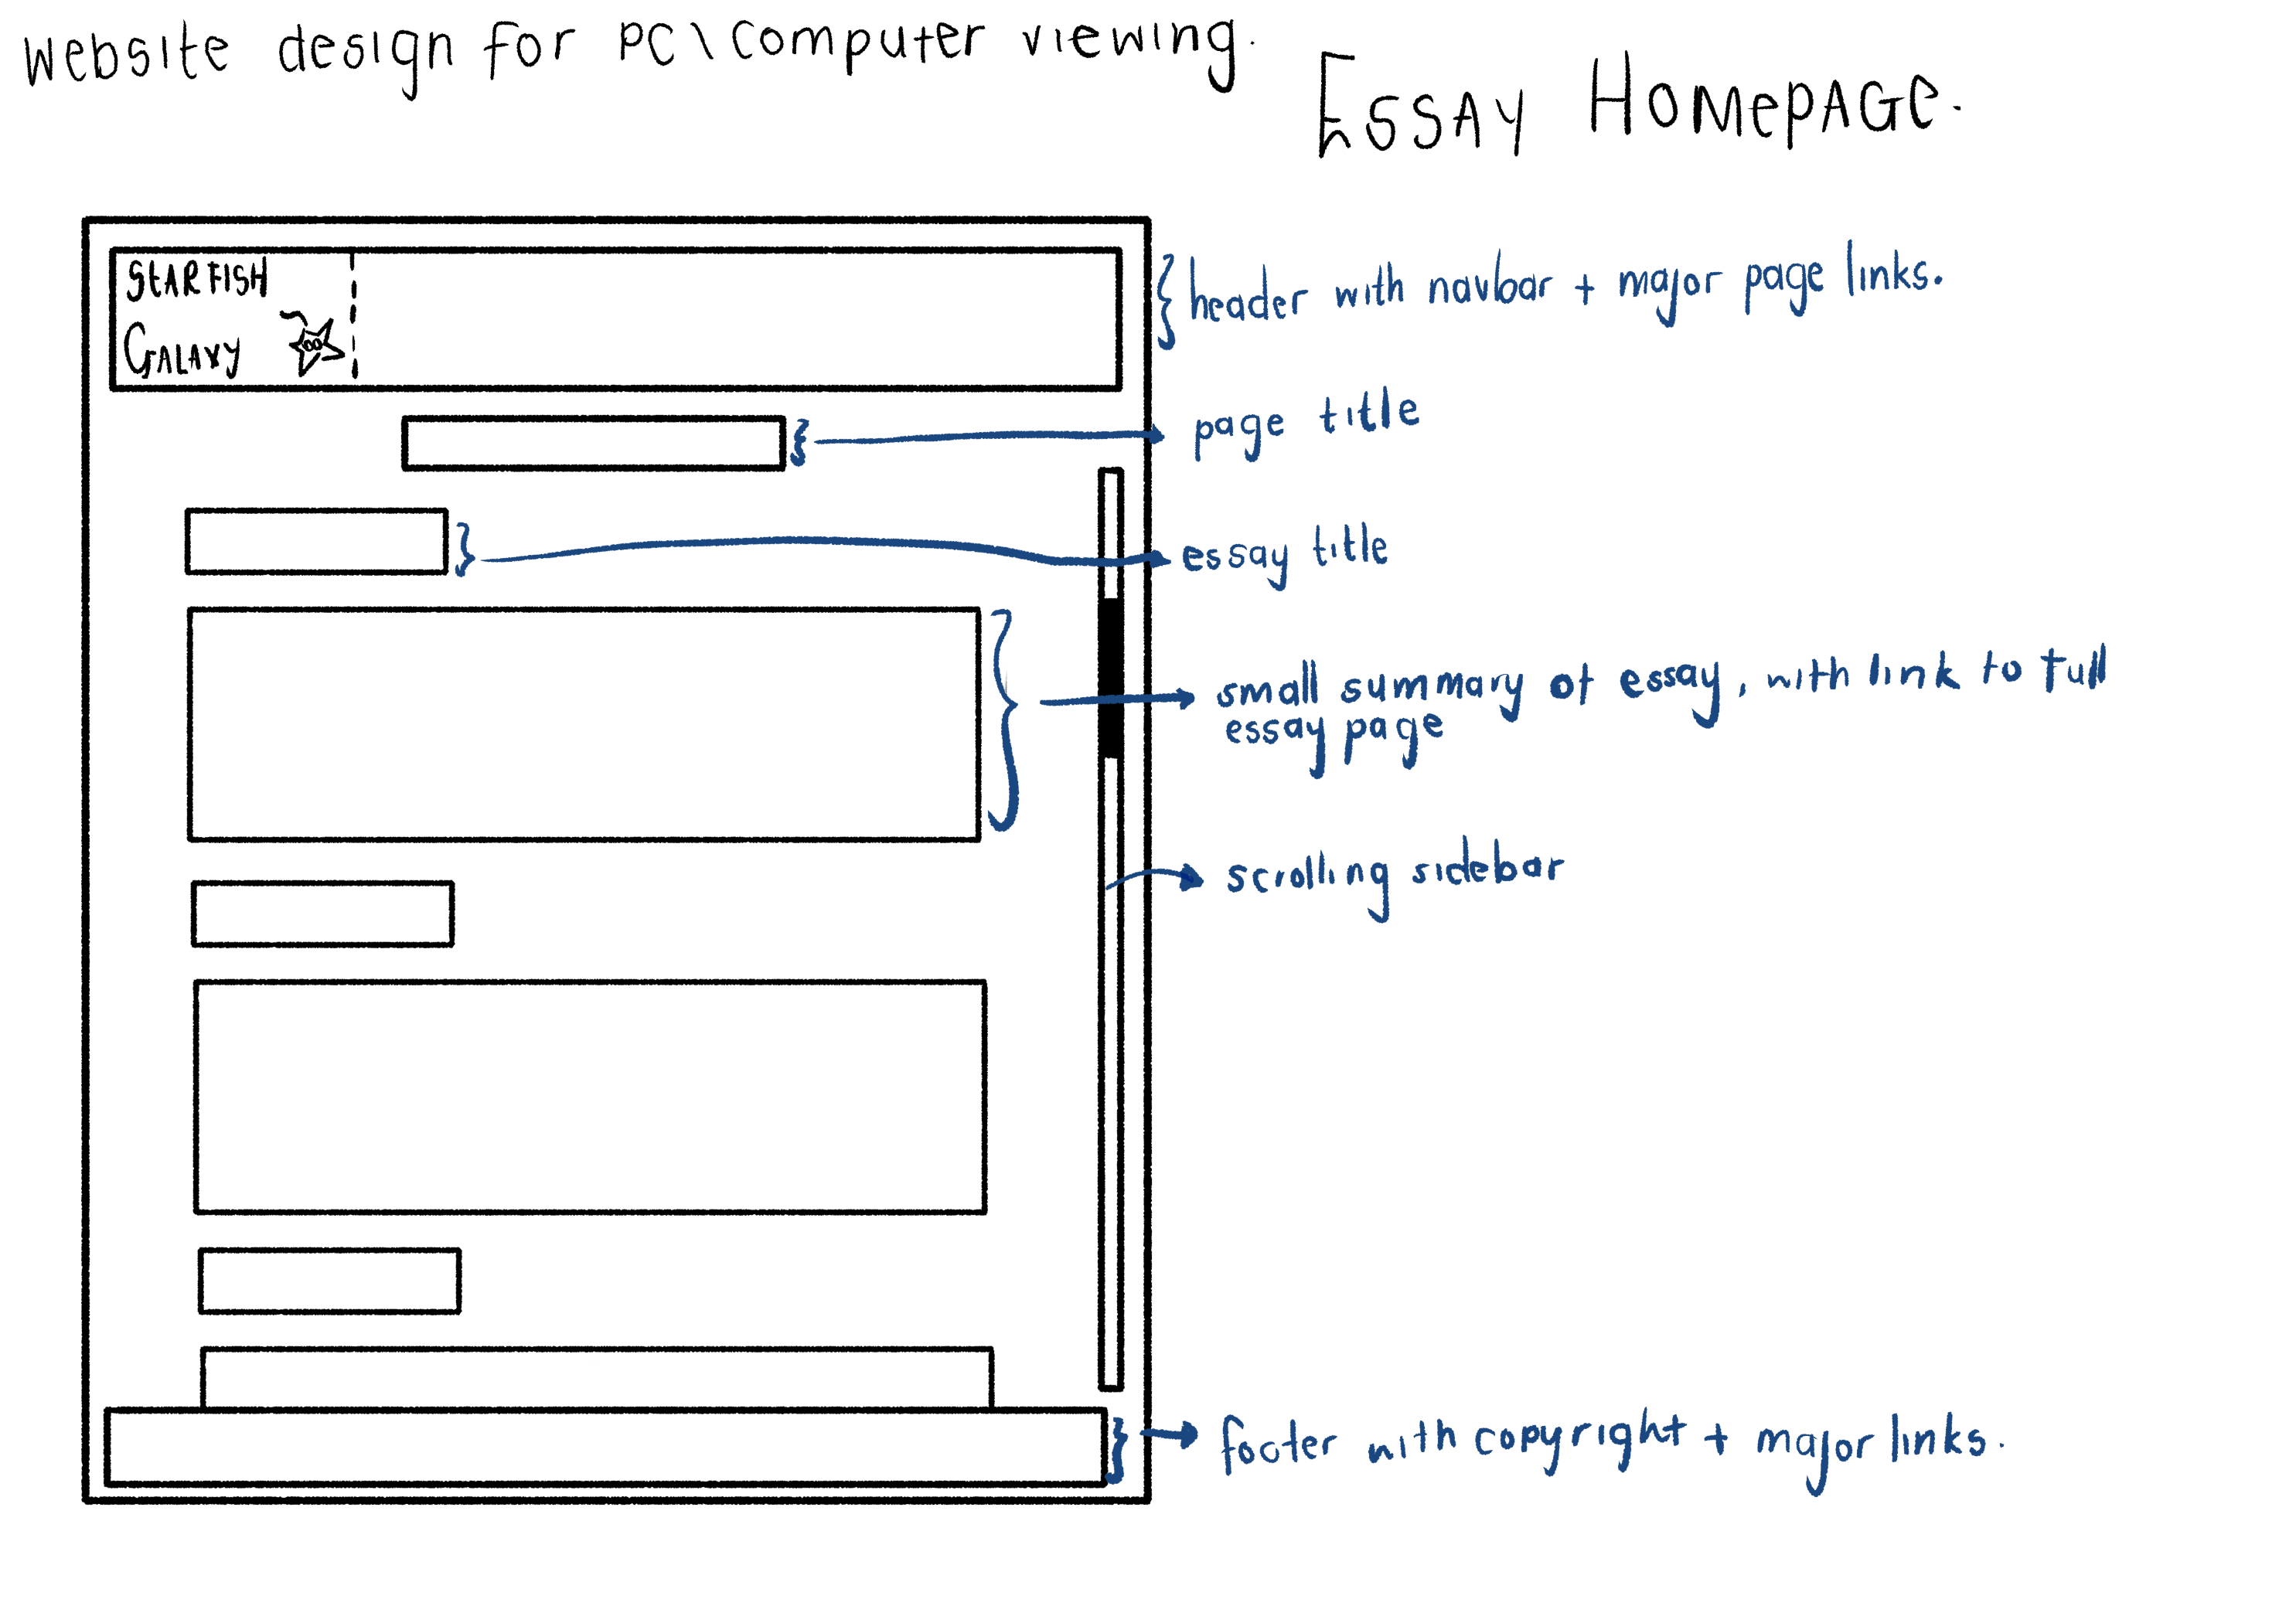 website design for PC\computer viewing.
ESSAY HOMEPAGE.
STARFISH
GALAXY
header with navbar + major page links.
page title
essay title
small summary of essay, with link to full
essay page
scrolling sidebar
footer with copyright + major links.